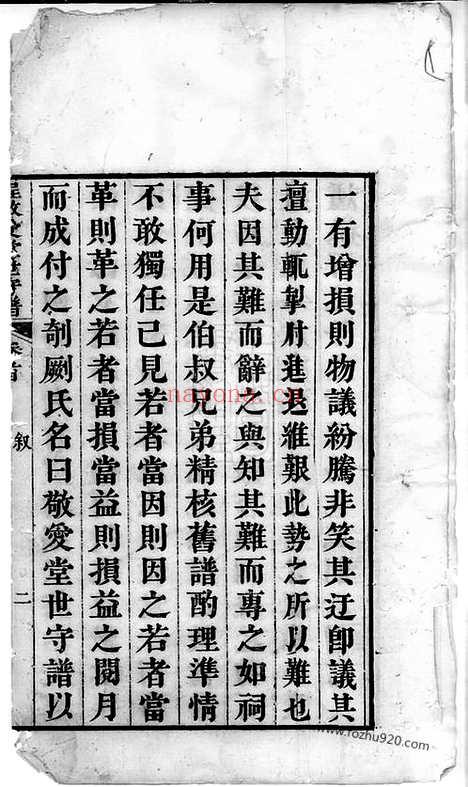 一有增損則物議紛騰非笑其迂卽議其
擅動輒掣肘進退維艱此勢之所以難也
夫因其難而辭之與知其難而專之如祠
事何用是伯叔兄弟精核舊譜酌理準情
不敢獨任己見若者當因則因之若者當
革則革之若者當損當益則損益之閱月
而成付之剞劂氏名曰敬愛堂世守譜以
敬愛堂世守譜
首
叙
二
nayona.cn
www.fozhu920.com